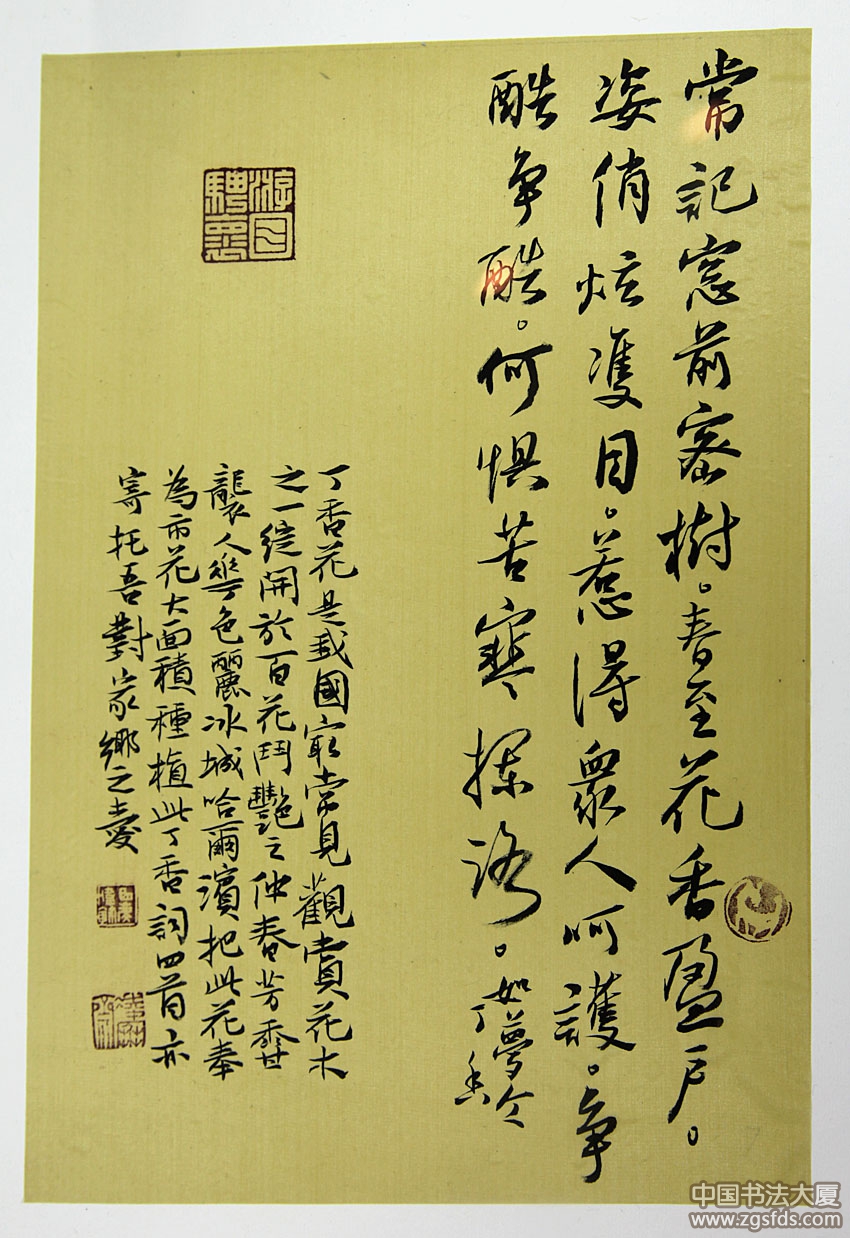 常記窓前密樹。春至花香盈戶。
姿俏炫雙目。惹得眾人呵護。爭
酷爭酷。何懼苦寒摧路。如夢令
丁香
丁香花是我國最常見觀賞花木
之一綻開於百花鬥艷之仲春芳香
襲人華色麗冰城哈爾濱把此花奉
為市花大面積種植此丁香詞四首亦
寄托吾對家鄉之愛
游目騁懷
中国书法大厦
www.zgsfds.com